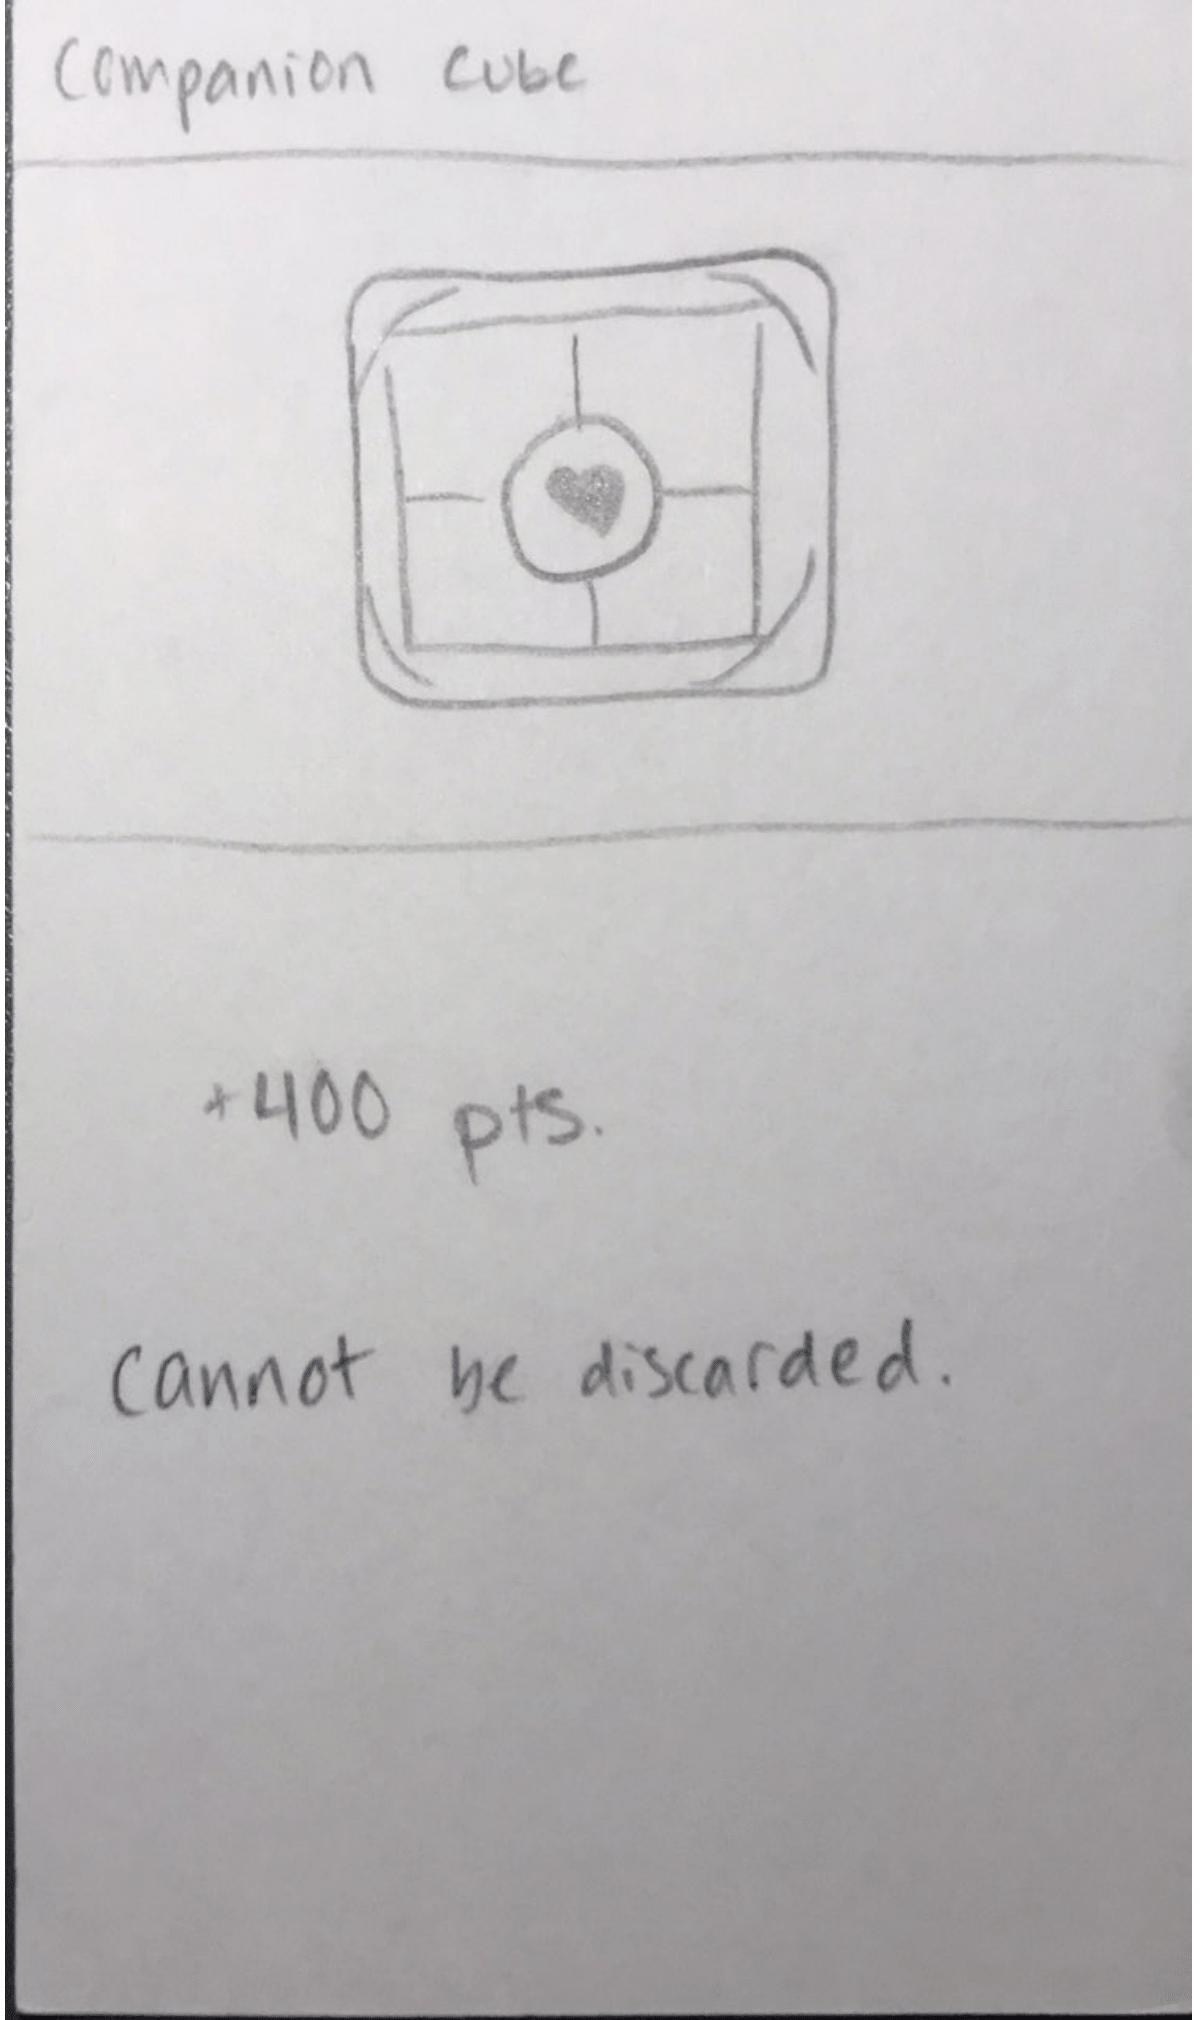 Companion cube
+400 pts.
Cannot be discarded.